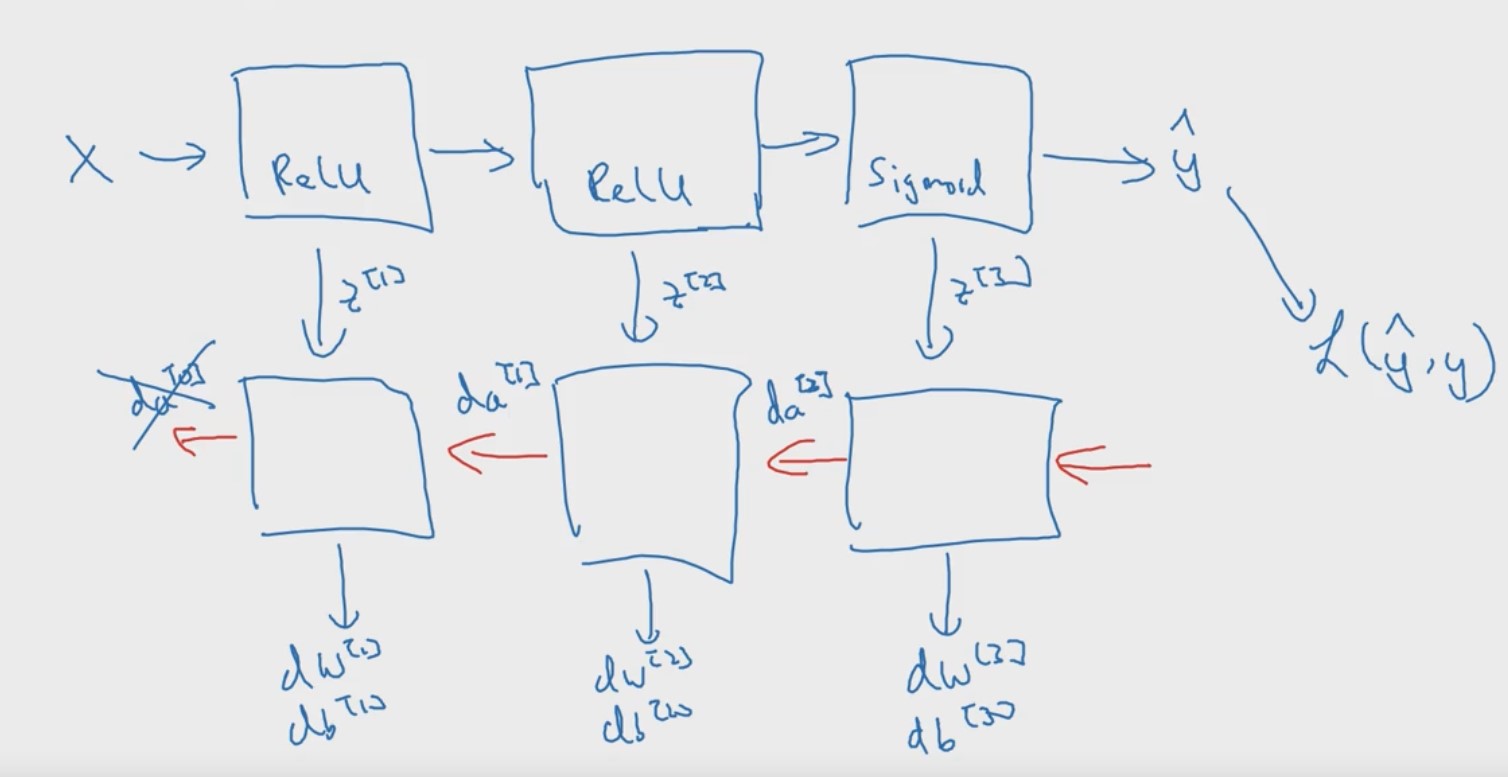 X
ReLU
ReLU
Sigmoid
ŷ
z[1]
z[2]
z[3]
L(ŷ,y)
da[0]
da[1]
da[2]
dw[1]
db[1]
dw[2]
db[2]
dw[3]
db[3]